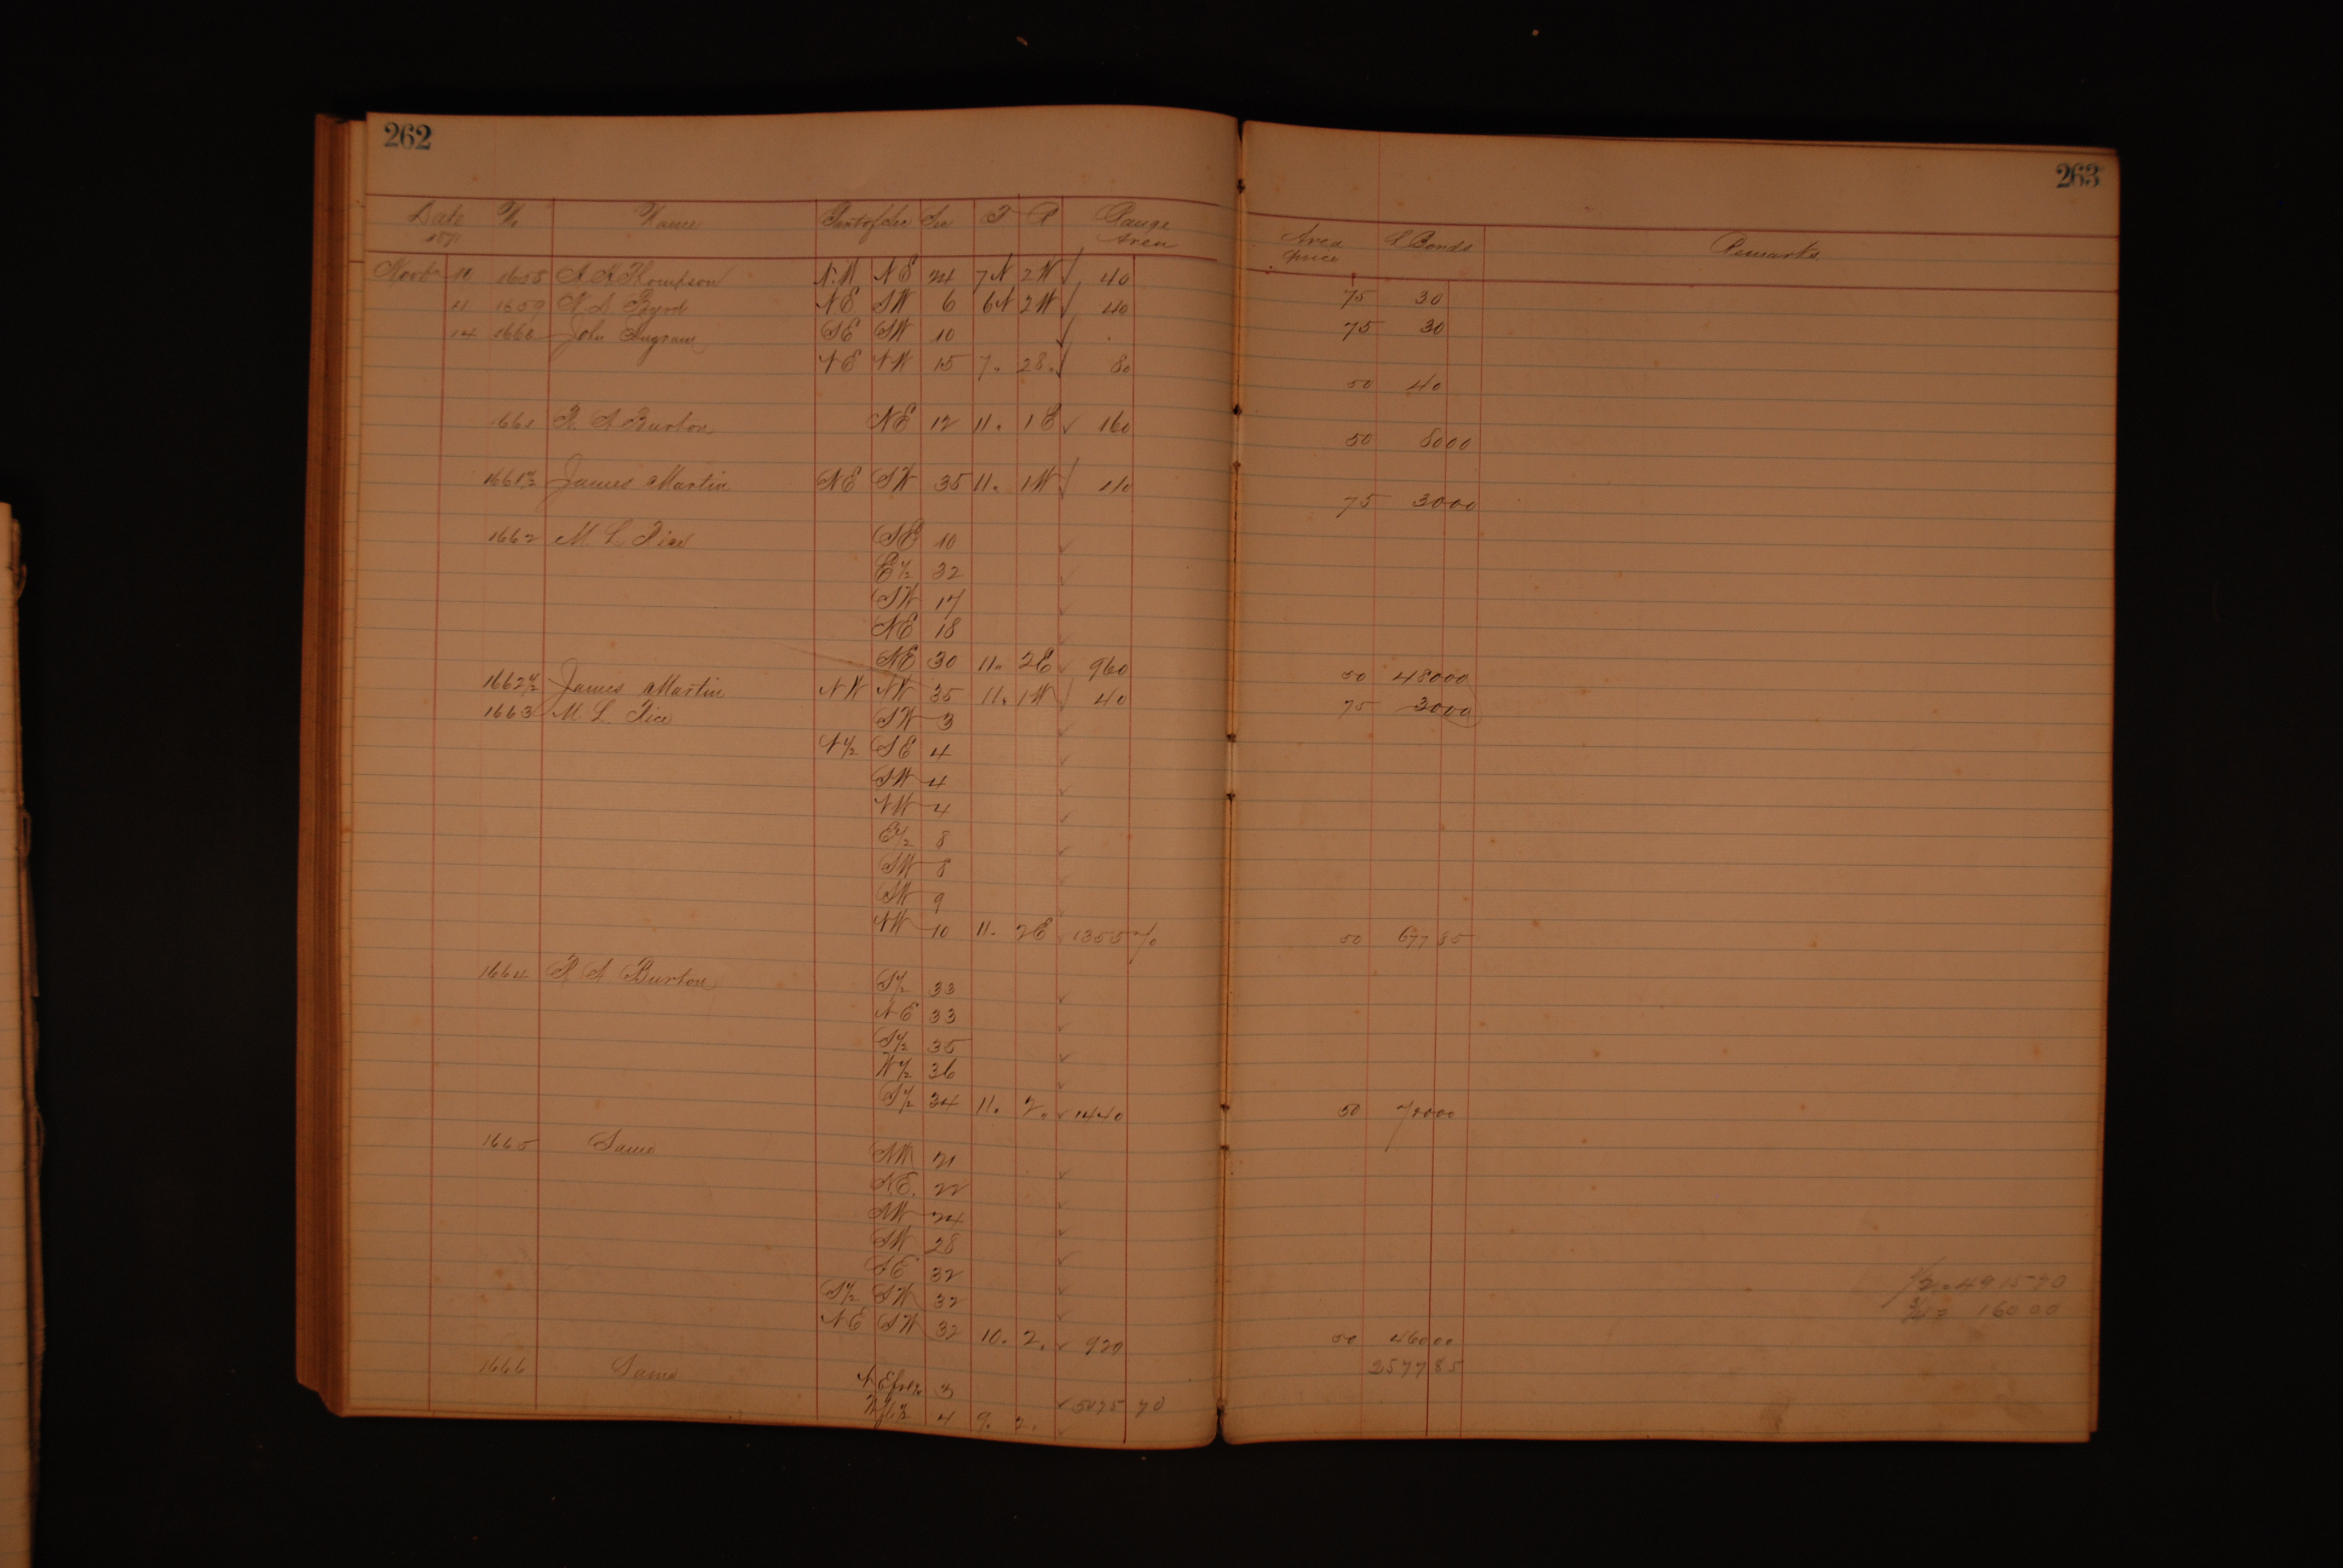 262
263
Date 1871 No Name Part of Sec Sec T R Range Area
Area Price L Bonds Remarks
Novbr 10 1658 A A Thompson N.W NE 24 7N 2W 40 75 30
11 1659 N. S. Byrd NE SW 6 6N 2W 40 75 30
14 1660 John Ingram SE SW 10
NE NW 15 7. 28. 80 50 40
1661 R. A Burton NE 12 11. 1E 160 50 8000
1661½ James Martin NE SW 35 11. 1W 40 75 3000
1662 M. L. Rice SE 10
E½ 32
SW 17
NE 18
NE 30 11. 2E 960 50 48000
1662½ James Martin NW NW 35 11. 1W 40 75 3000
1663 M. L. Rice SW 3
N½ SE 4
SW 4
NW 4
E½ 8
SW 8
SW 9
NW 10 11. 2E 1355 70 50 677 85
1664 R A Burton S½ 33
NE 33
S½ 35
W½ 36
S½ 34 11. 2. 1440 50
1665 Same NW 21
N.E. 22
NW 24
SW 28
SE 32
S½ SW 32
NE SW 32 10. 2. 920 50 46000
4915 70
160 00
2577 85
1666 Same 3
4 9. 2.
70